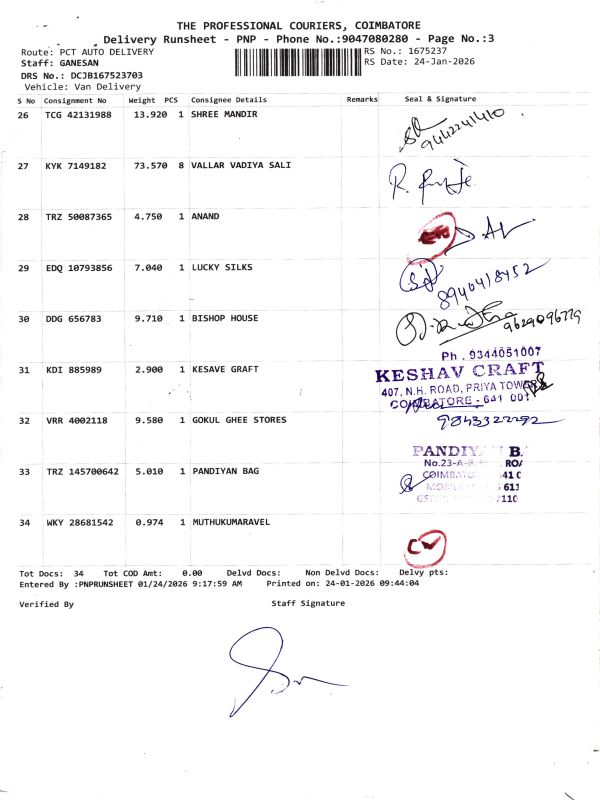 THE PROFESSIONAL COURIERS, COIMBATORE
Delivery Runsheet - PNP - Phone No.:9047080280 - Page No.:3
Route: PCT AUTO DELIVERY
RS No.: 1675237
Staff: GANESAN
RS Date: 24-Jan-2026
DRS No.: DCJB167523703
Vehicle: Van Delivery
S No Consignment No Weight PCS Consignee Details Remarks Seal & Signature
26 TCG 42131988 13.920 1 SHREE MANDIR
9442241410
27 KYK 7149182 73.570 8 VALLAR VADIYA SALI
28 TRZ 50087365 4.750 1 ANAND
29 EDQ 10793856 7.040 1 LUCKY SILKS
8940418452
30 DDG 656783 9.710 1 BISHOP HOUSE
9629096779
Ph. 9344051007
31 KDI 885989 2.900 1 KESAVE GRAFT
KESHAV CRAFT
407, N.H. ROAD, PRIYA TOWER
COIMBATORE - 641 001
32 VRR 4002118 9.580 1 GOKUL GHEE STORES
9843322292
PANDIYAN B
No.23-A
33 TRZ 145700642 5.010 1 PANDIYAN BAG
34 WKY 28681542 0.974 1 MUTHUKUMARAVEL
CW
Tot Docs: 34 Tot COD Amt: 0.00 Delvd Docs: Non Delvd Docs: Delvy pts:
Entered By :PNPRUNSHEET 01/24/2026 9:17:59 AM Printed on: 24-01-2026 09:44:04
Verified By Staff Signature